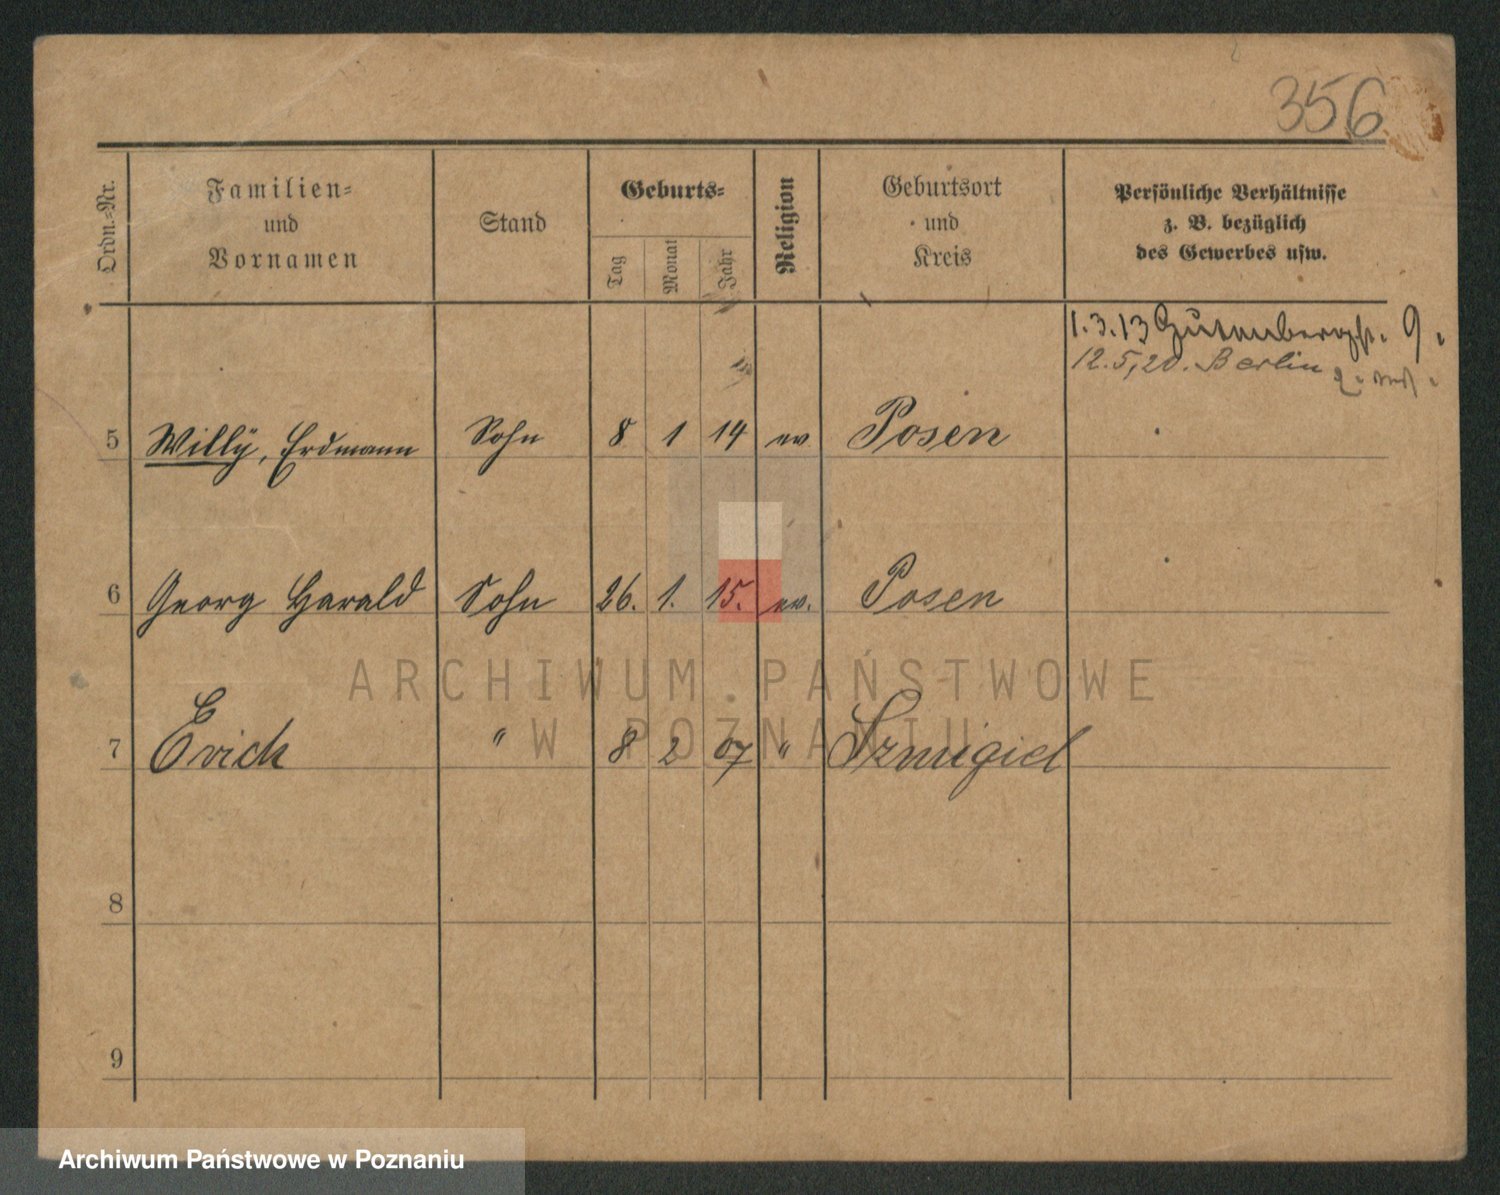 356
Ordn.-Nr.
Familien-
und
Vornamen
Stand
Geburts-
Tag
Monat
Jahr
Religion
Geburtsort
und
Kreis
Persönliche Verhältnisse
z. B. bezüglich
des Gewerbes usw.
1.3.13 Gutenbergstr. 9.
12.5.20. Berlin
5 Willÿ, Erdmann Sohn 8 1 14 ev Posen
6 Georg Harald Sohn 26. 1. 15. ev. Posen
7 Erich " 8 2 07 " Szmigiel
8
9
ARCHIWUM PAŃSTWOWE
W POZNANIU
Archiwum Państwowe w Poznaniu